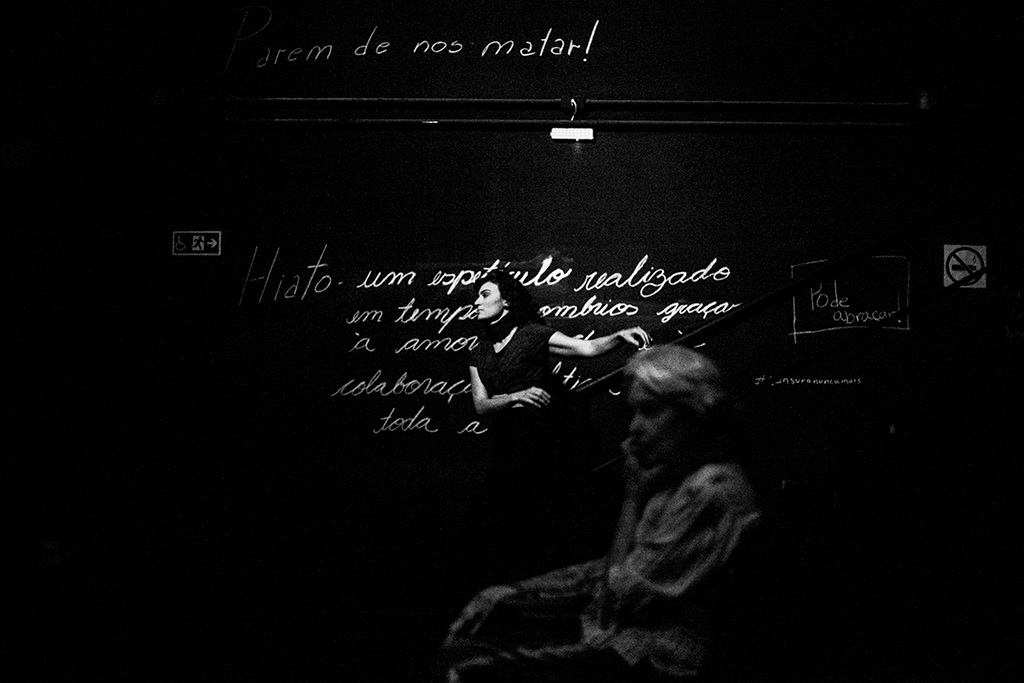 Parem de nos matar!
Hiato - um espetáculo realizado
em tempos sombrios graças
à amor
colaboraç
toda a
Pode
abraçar!